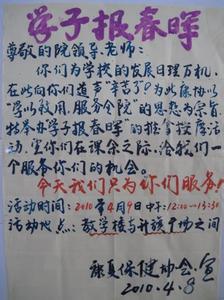 学子报春晖
尊敬的院领导、老师：
你们为学校的发展日理万机，
在此向你们道声"辛苦了"为此康协以
"学以致用，服务全院"的思想为宗旨，
特举办学子报春晖的推拿按摩活
动，望你们在课余之际，给我们一
个服务你们的机会。
今天我们只为你们服务！
活动时间：2010年4月9日中午12:00-13:30
活动地点：教学楼与升旗广场之间
康复保健协会宣
2010.4.8